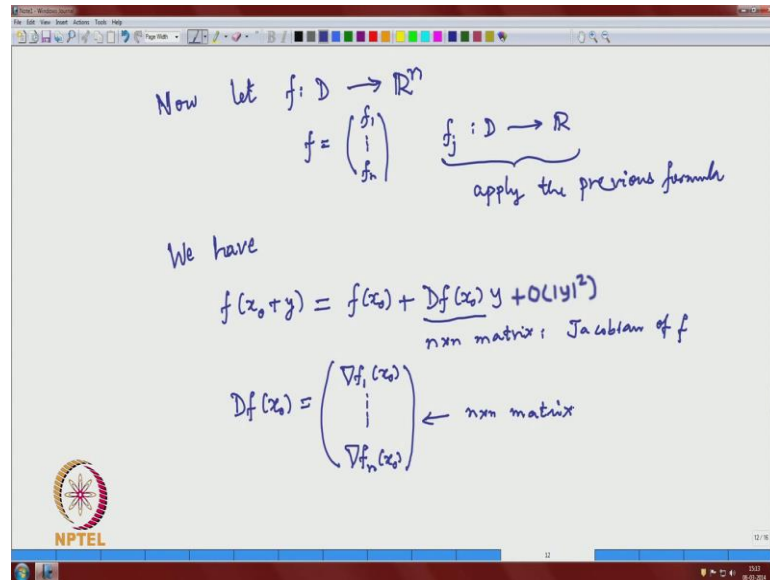 Note1 - Windows Journal
File Edit View Insert Actions Tools Help
Page Width
Now let f : D → ℝⁿ
f = (f₁ ⋮ fₙ) fⱼ : D → ℝ
apply the previous formula
We have
f(x₀+y) = f(x₀) + Df(x₀) y + O(|y|²)
n×n matrix: Jacobian of f
Df(x₀) = (∇f₁(x₀) ⋮ ∇fₙ(x₀)) ← n×n matrix
NPTEL
12/16
12
15:13
06-03-2014